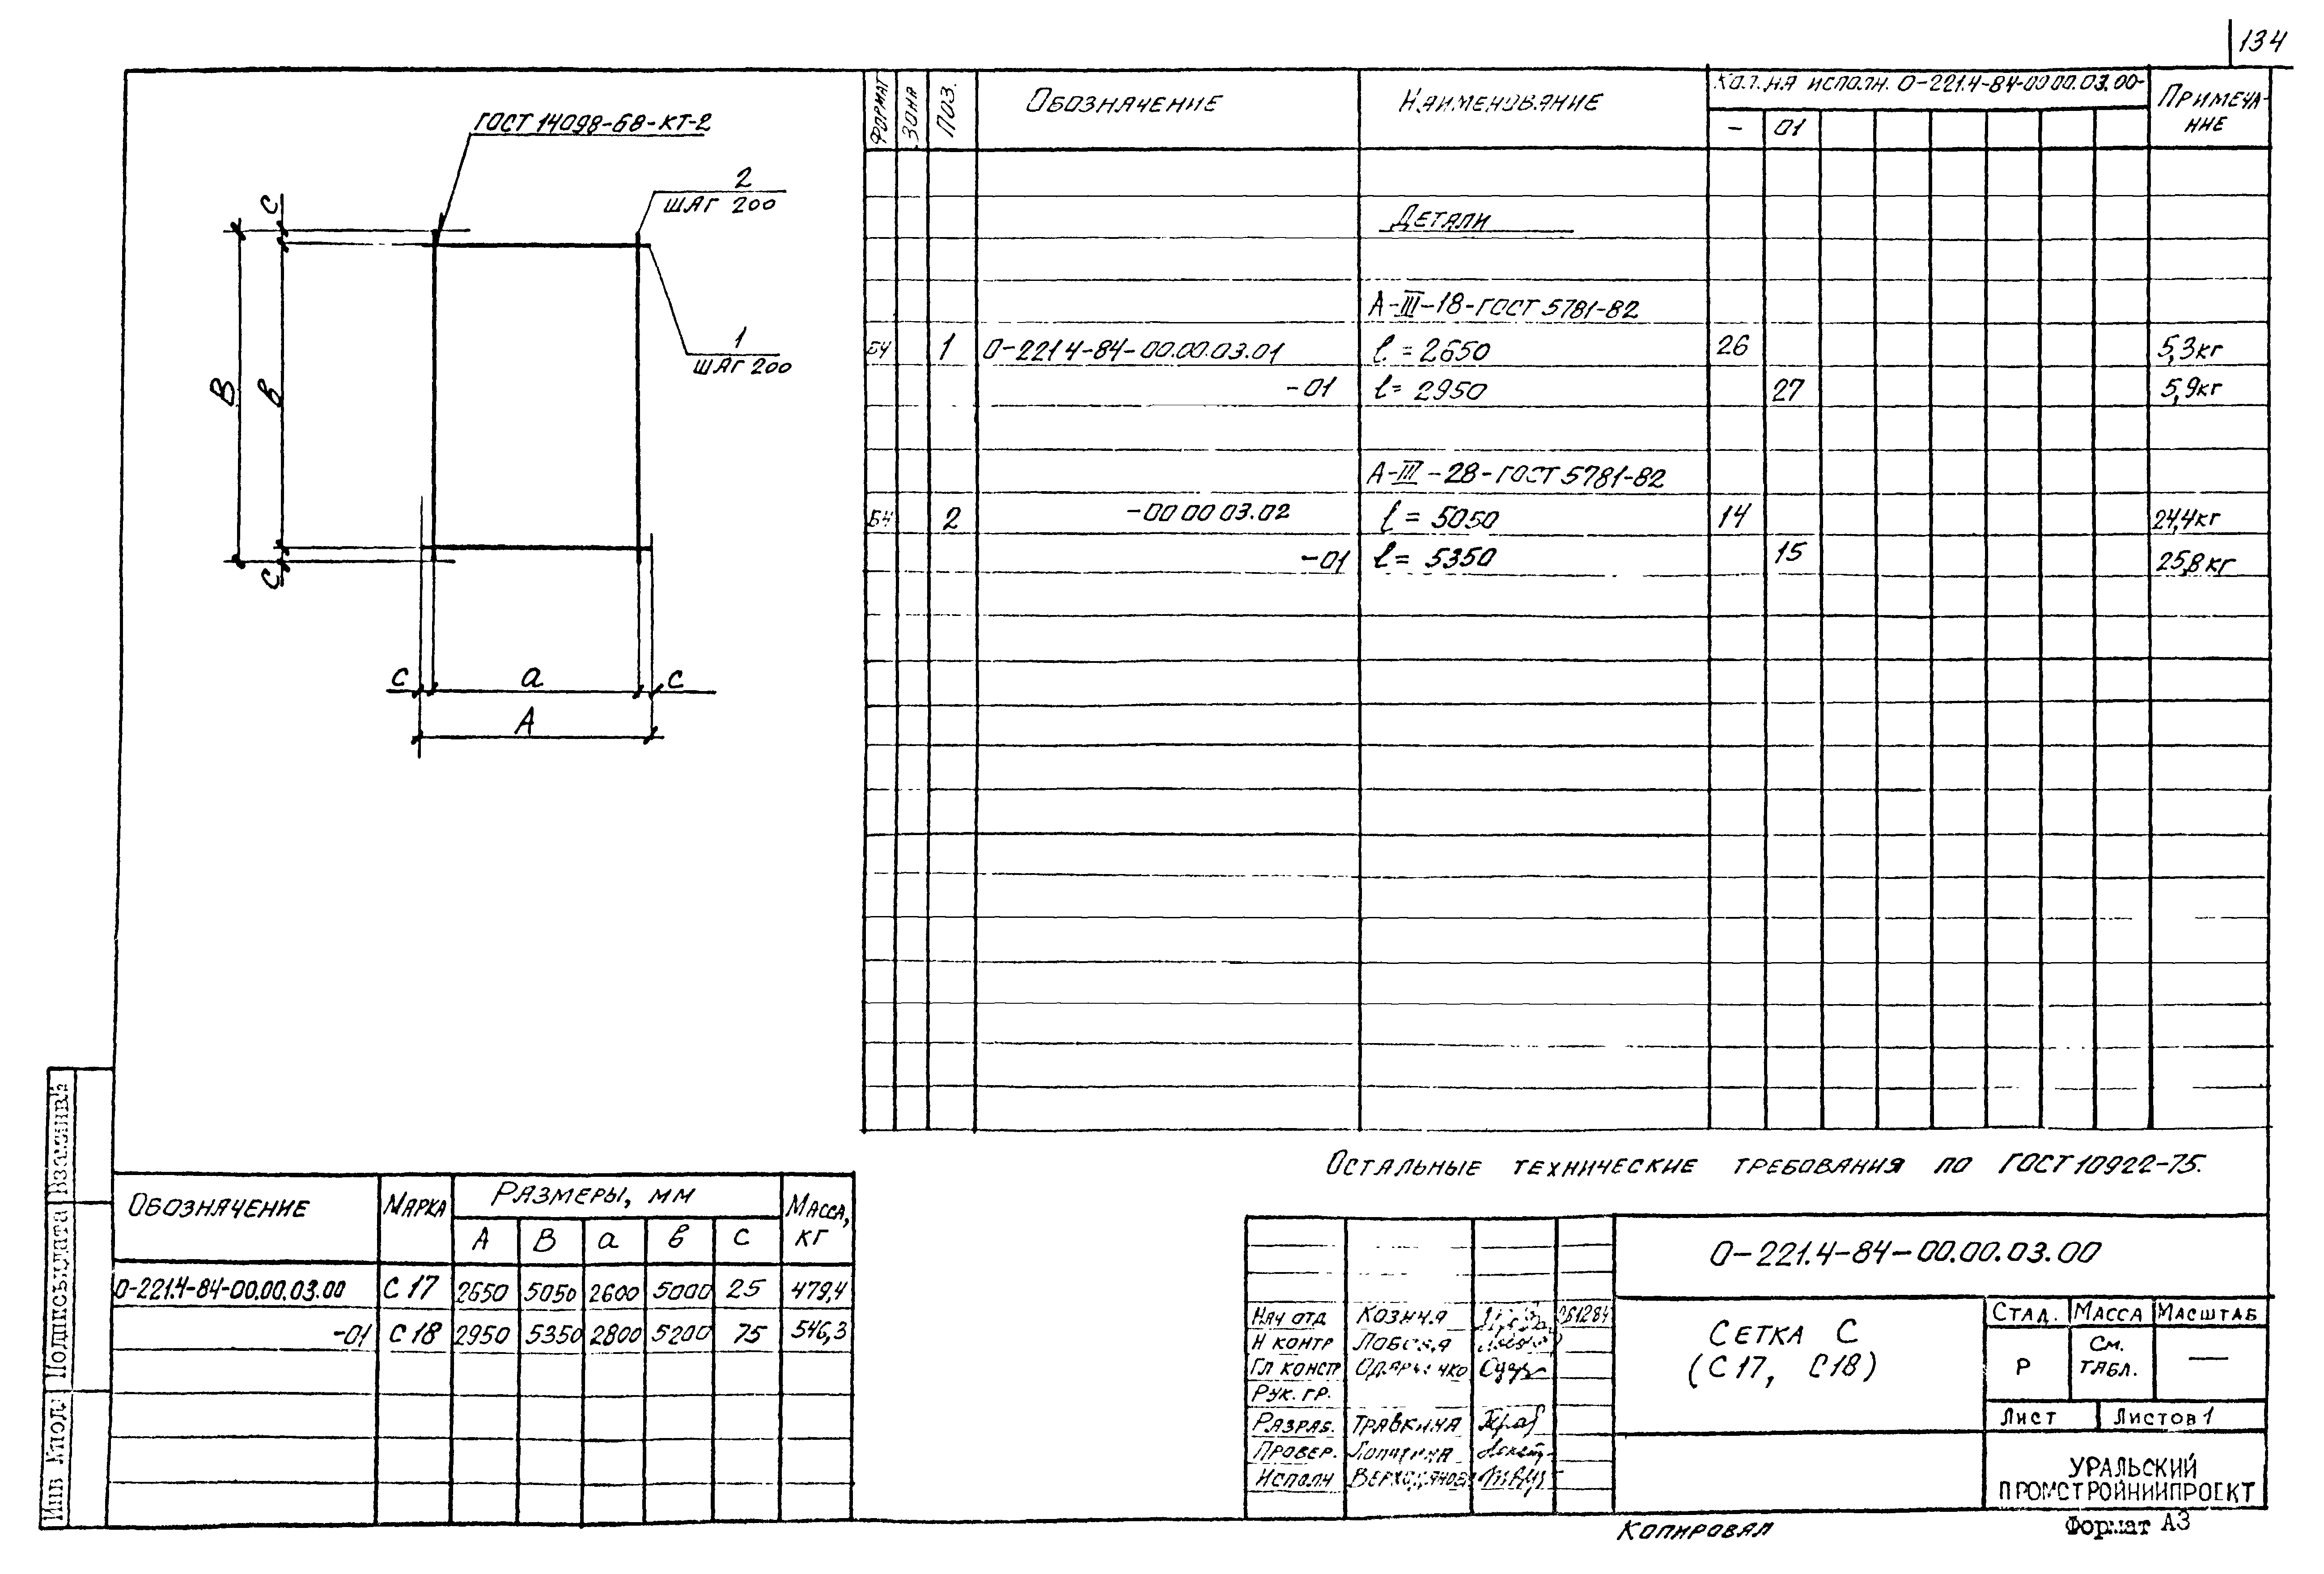 134
ГОСТ 14098-68-КТ-2
2
ШАГ 200
1
ШАГ 200
С
В
в
С
С а С
А
ФОРМАТ ЗОНА ПОЗ. ОБОЗНАЧЕНИЕ НАИМЕНОВАНИЕ КОЛ. НА ИСПОЛН. 0-221.4-84-00.00.03.00- ПРИМЕЧА-
НИЕ
- 01
ДЕТАЛИ
А-III-18-ГОСТ 5781-82
БЧ 1 0-221 4-84-00.00.03.01 ℓ = 2650 26 5,3кг
-01 ℓ= 2950 27 5,9кг
А-III-28-ГОСТ 5781-82
БЧ 2 -00 00 03.02 ℓ = 5050 14 24,4кг
-01 ℓ= 5350 15 25,8кг
ОСТАЛЬНЫЕ ТЕХНИЧЕСКИЕ ТРЕБОВАНИЯ ПО ГОСТ 10922-75.
ОБОЗНАЧЕНИЕ МАРКА РАЗМЕРЫ, ММ МАССА,
КГ
А В а в с
0-221.4-84-00.00.03.00 С 17 2650 5050 2600 5000 25 479,4
-01 С 18 2950 5350 2800 5200 75 546,3
0-221.4-84-00.00.03.00
НАЧ ОТД
Н КОНТР
ГЛ КОНСТР
РУК. ГР.
РАЗРАБ. ТРАВКИНА
ПРОВЕР.
ИСПОЛН
СЕТКА С
(С 17, С18)
СТАД. МАССА МАСШТАБ
Р СМ.
ТАБЛ. —
ЛИСТ ЛИСТОВ 1
УРАЛЬСКИЙ
ПРОМСТРОЙНИИПРОЕКТ
КОПИРОВАЛ Формат А3
Инв №подл Подпись и дата Взам инв №